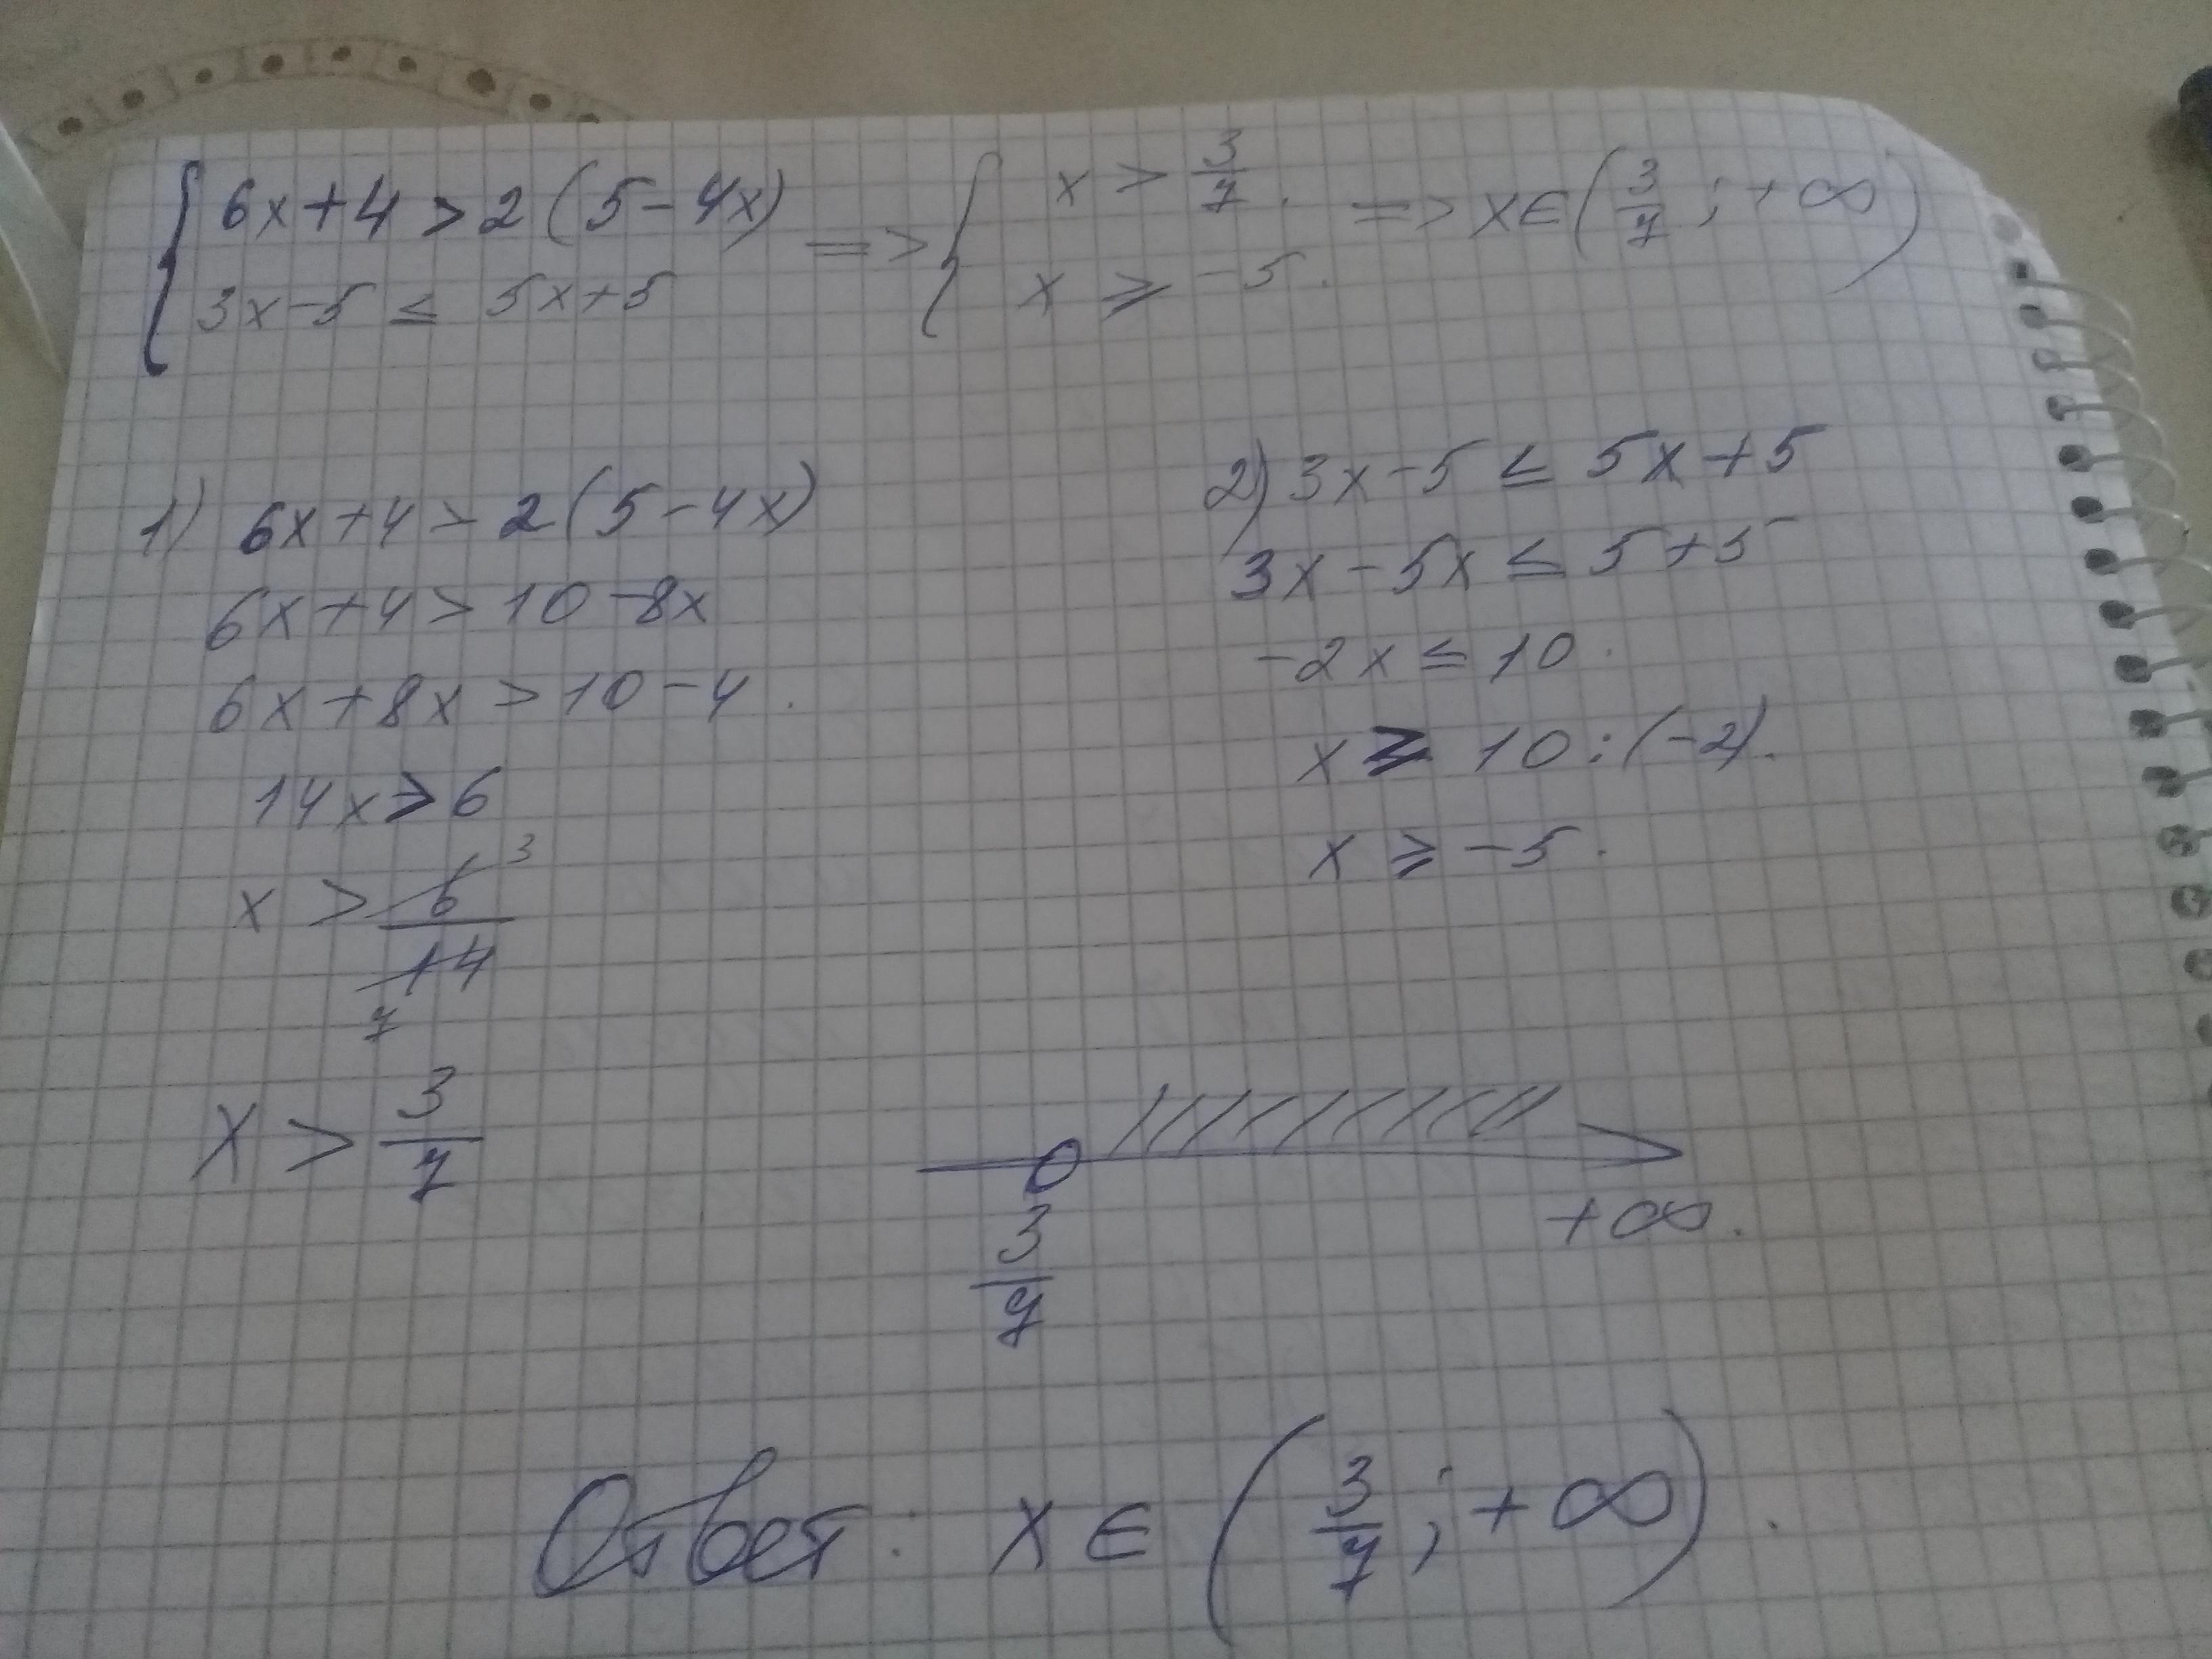 { 6x+4 > 2(5-4x) => { x > 3/7. => x∈(3/7; +∞)
3x-5 ≤ 5x+5 x ≥ -5.
1) 6x+4 > 2(5-4x)
6x+4 > 10-8x
6x+8x > 10-4.
14x > 6
x > 6/14 3 7
x > 3/7
2) 3x-5 ≤ 5x+5
3x-5x ≤ 5+5
-2x ≤ 10.
x ≥ 10:(-2).
x ≥ -5.
3/7 +∞.
Ответ: x ∈ (3/7; +∞).